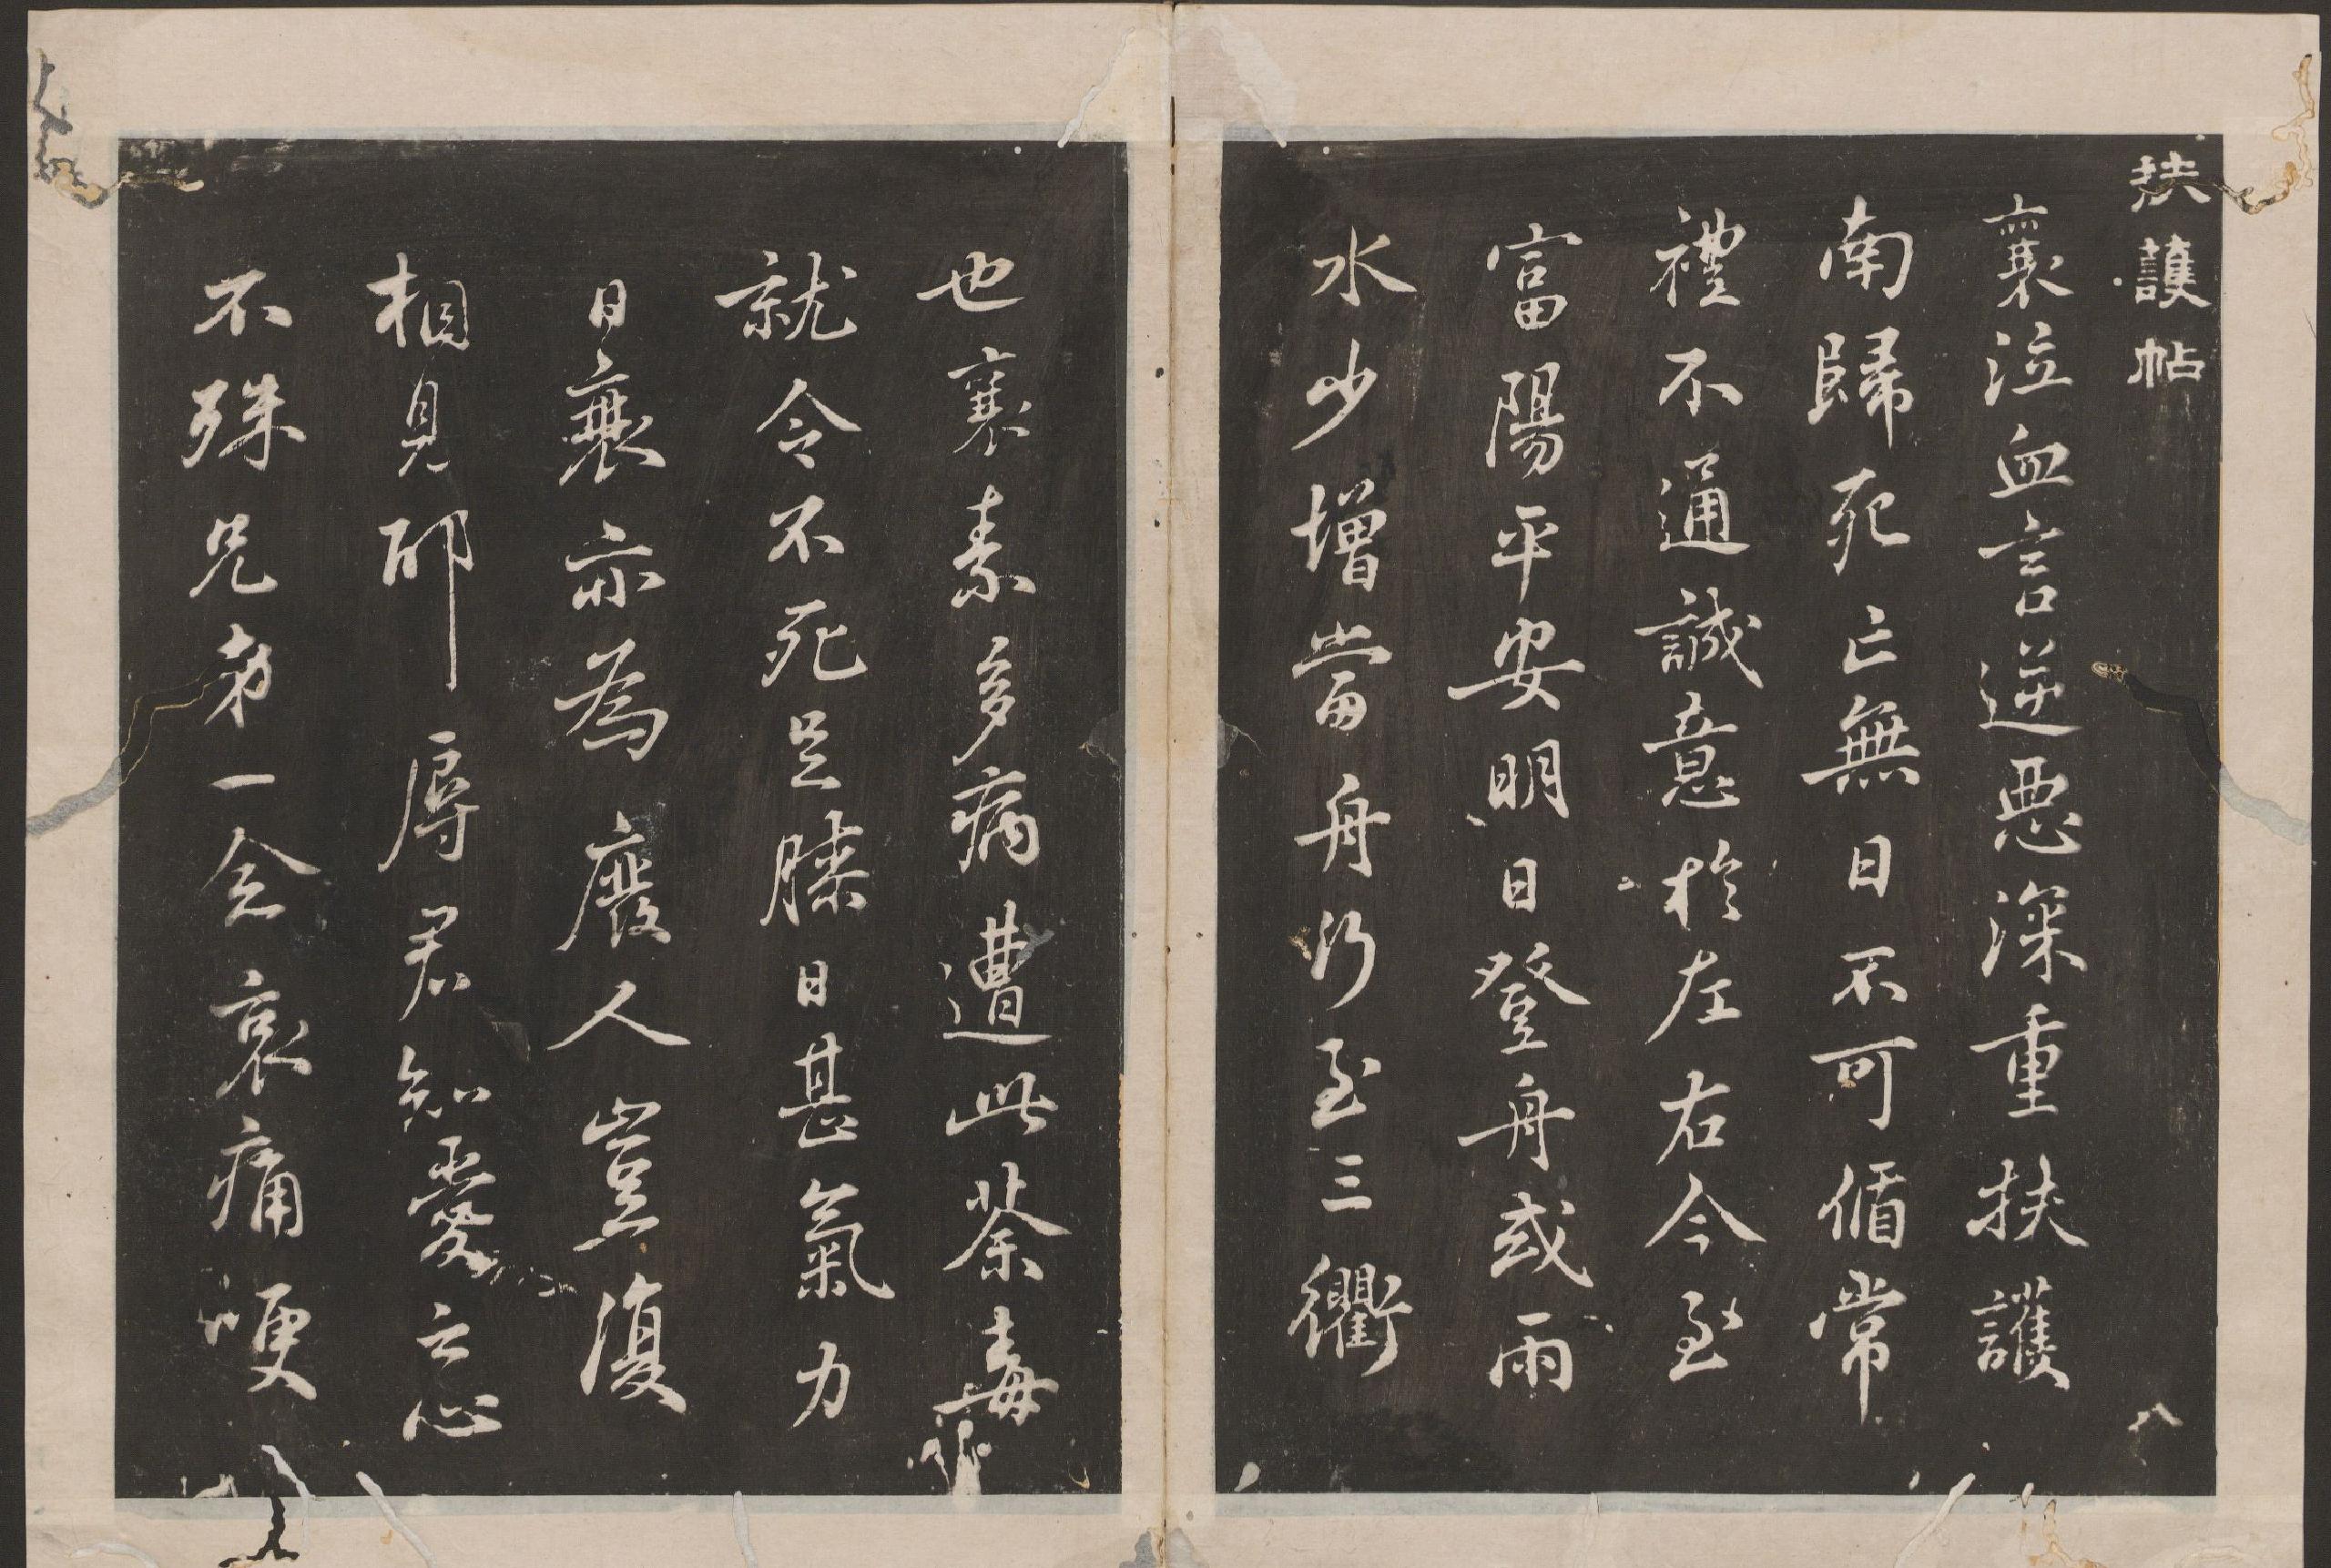 扶護帖
襄泣血言逆惡深重扶護
南歸死亡無日不可循常
禮不通誠意於左右今至
富陽平安明日登舟或雨
水少增當舟行至三衢
八
也襄素多病遭此荼毒
就令不死足膝日甚氣力
日衰亦為廢人豈復
相見耶辱君知愛之心
不殊兄弟一念哀痛哽